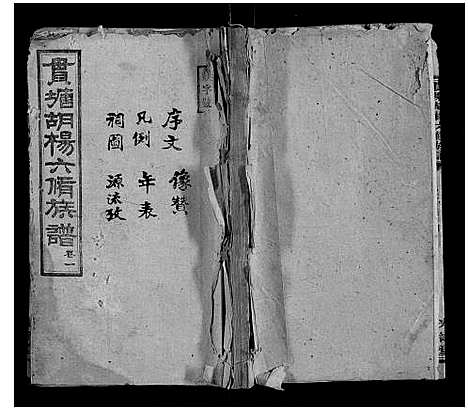 貫塘胡楊六脩族譜 卷一
序文 像贊
凡例 年表
祠圖 源流攷